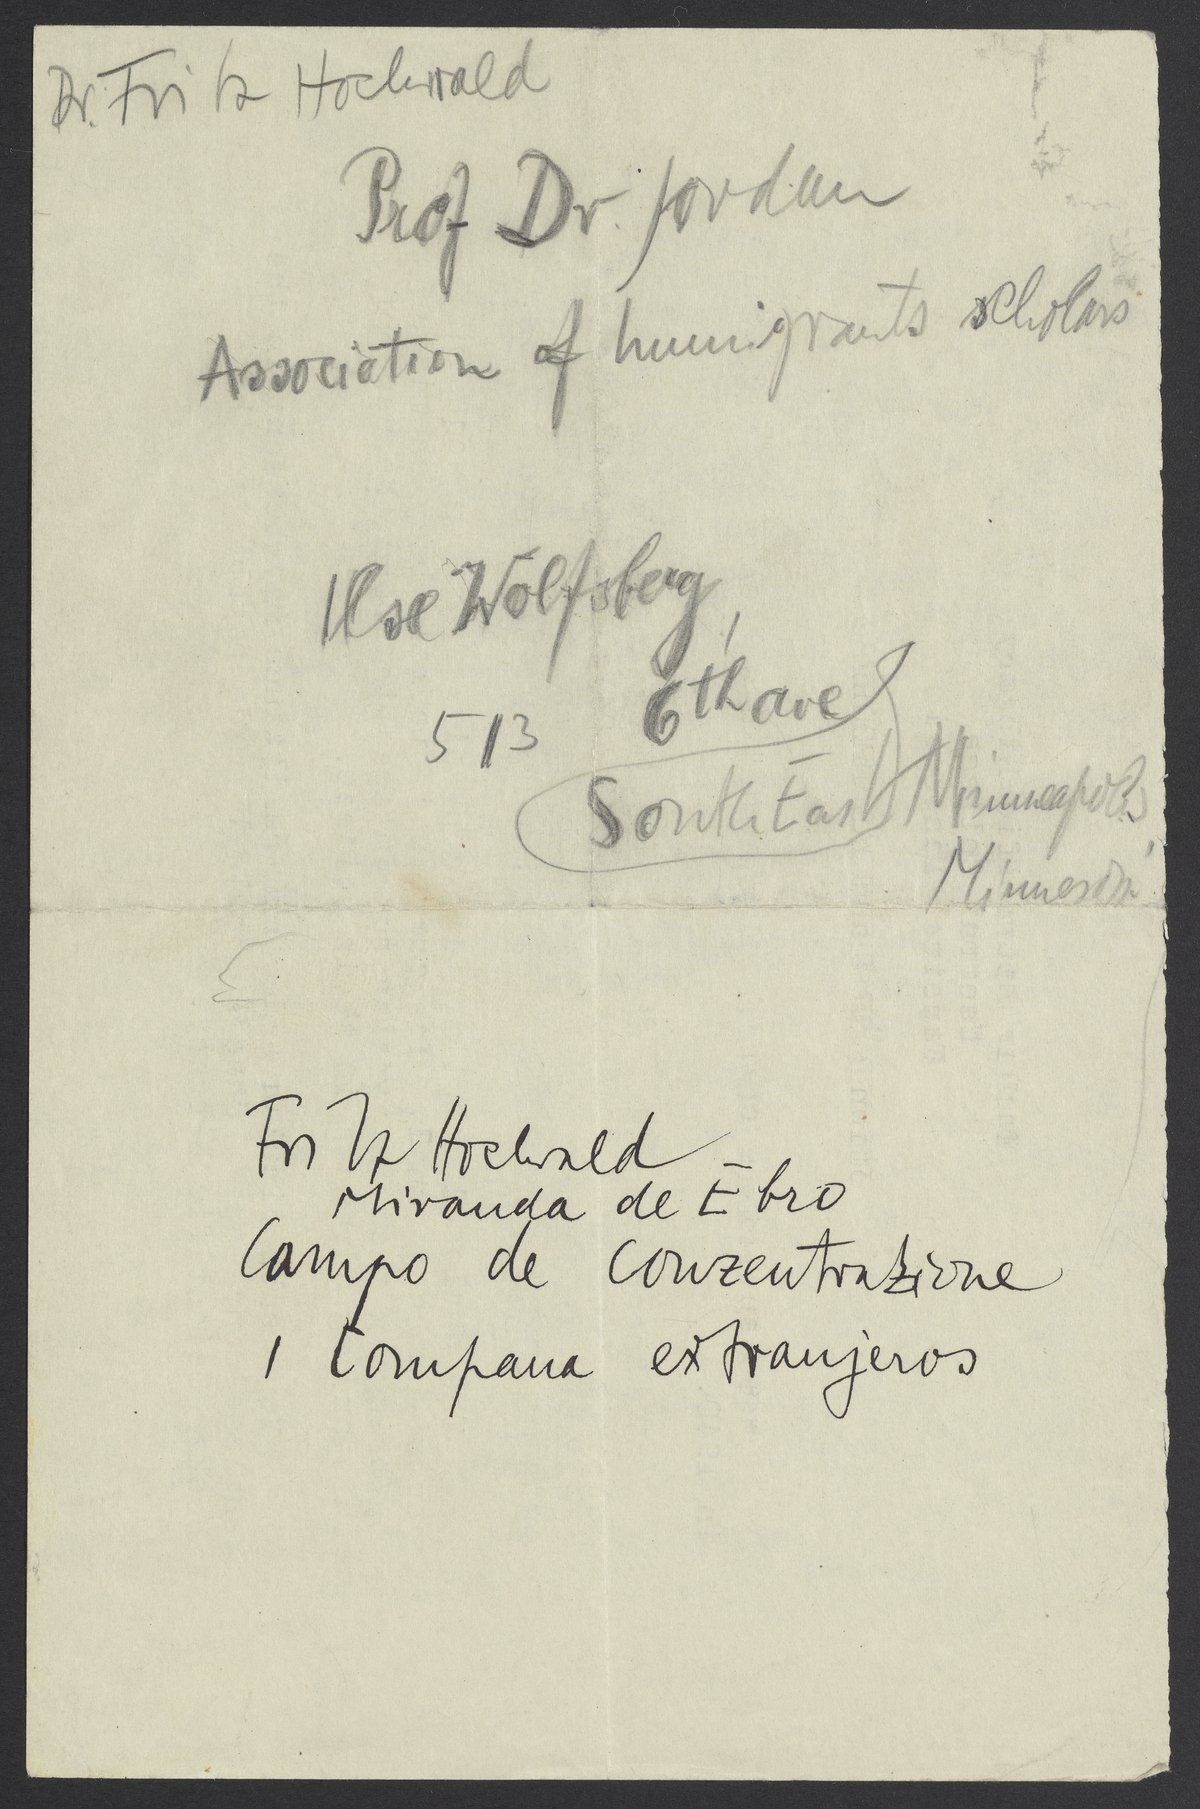 Dr. Fritz Hochwald
Prof Dr. Jordan
Association of Immigrants scholars
Ilse Wolfsberg,
513 6th ave
South East Minneapolis,
Minnesota
Fritz Hochwald
Miranda de Ebro
Campo de Conzentrazione
1 Compana extranjeros